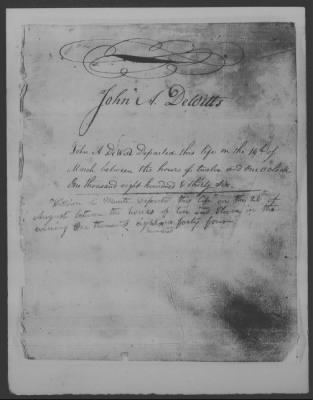 John A. DeWitts
John A DeWitt Departed this life on the 14th of
March between the hours of twelve and One o'clock
One thousand eight hundred & thirty six
William Departed this life on the 26 of
August between the hours of ten and Eleven in the
evening One thousand eight
hundred forty four